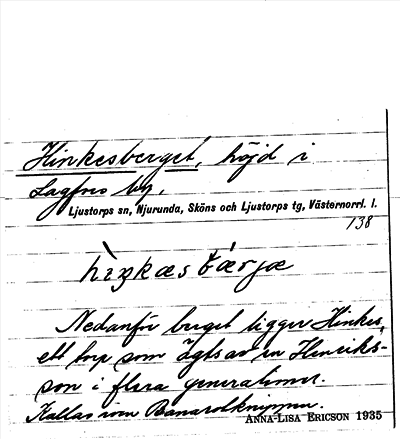 Hinkesberget, höjd i
Lagfors by.
Ljustorps sn, Njurunda, Sköns och Ljustorps tg, Västernorrl. l.
138
hìŋkæs bǽrjæ
Nedanför berget ligger Hinkes,
ett torp som ägts av en Henriks-
son i flera generationer.
Kallas även
ANNA-LISA ERICSON 1935